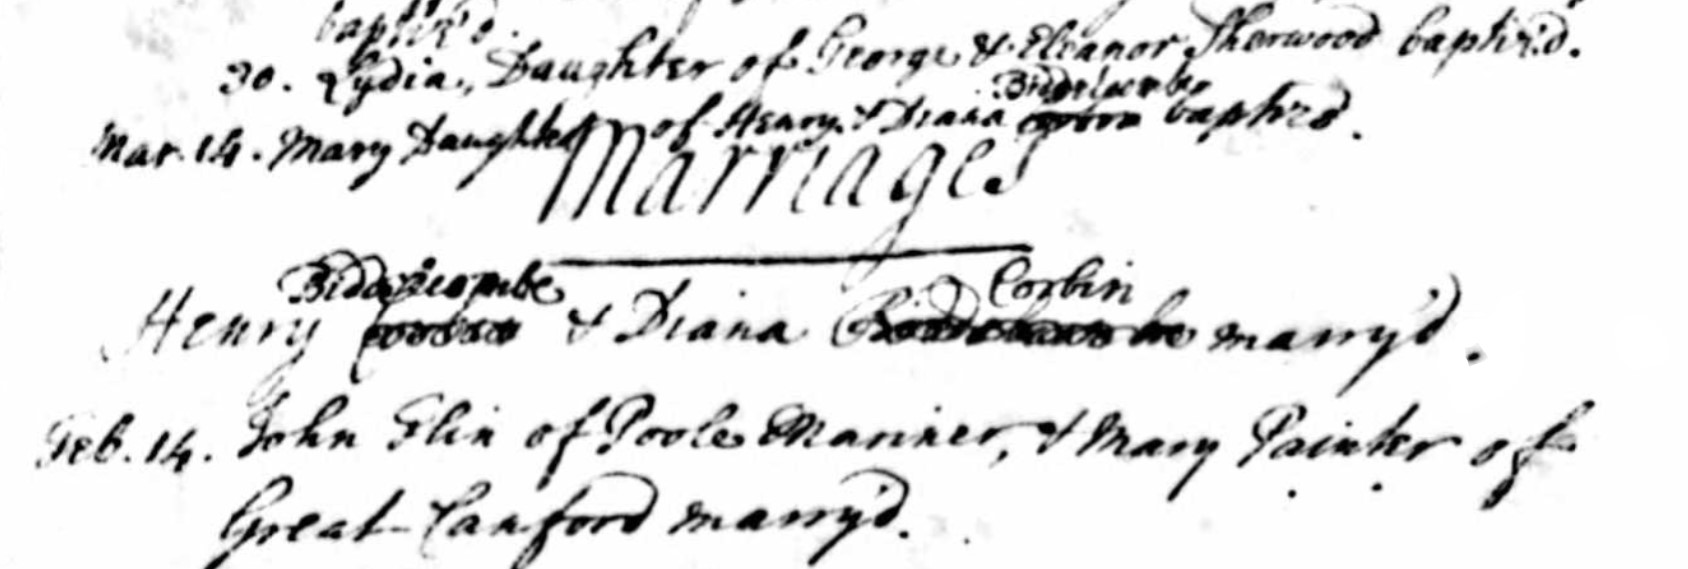 baptiz'd.
30. Lydia, Daughter of George & Eleanor Sherwood baptiz'd.
Mar. 14. Mary Daughter of Henry & Diana baptiz'd.
Marriages
Biddlecombe Corbin
Henry & Diana marry'd.
Feb. 14. John Elin of Poole Mariner, & Mary Painter of
Great Canford marry'd.